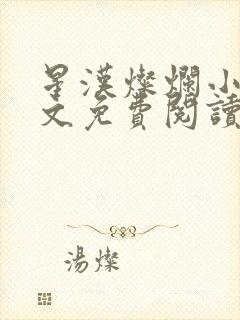 星漢燦爛小
文免費閱讀
湯燦